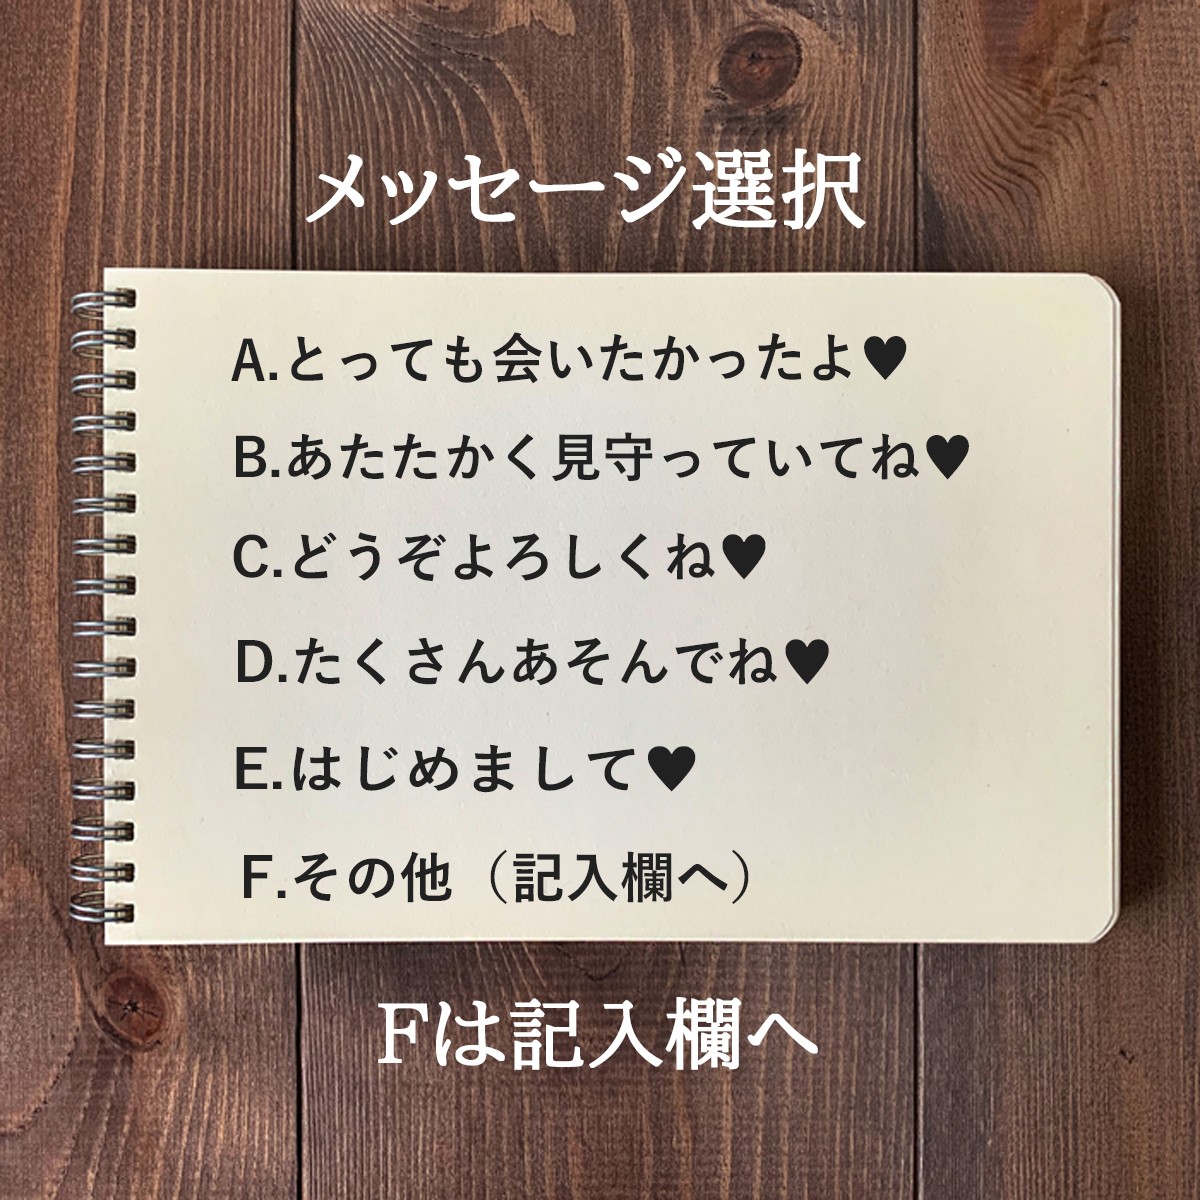 メッセージ選択
A.とっても会いたかったよ♥
B.あたたかく見守っていてね♥
C.どうぞよろしくね♥
D.たくさんあそんでね♥
E.はじめまして♥
F.その他（記入欄へ）
Fは記入欄へ